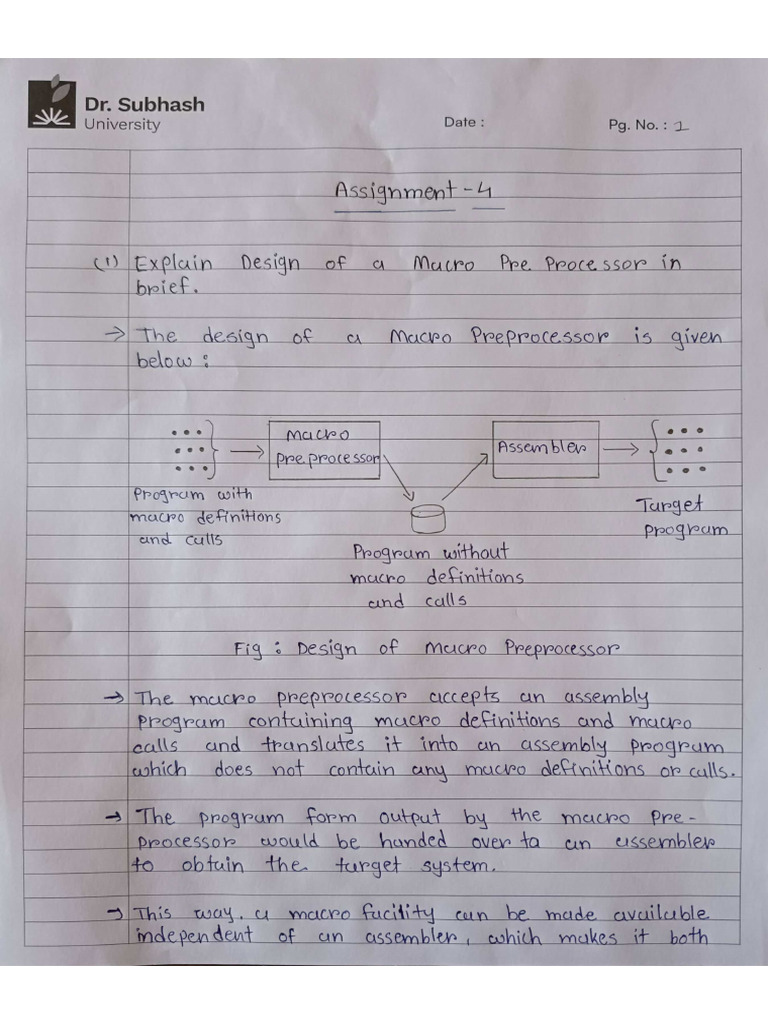 Dr. Subhash
University
Date :
Pg. No. : 1
Assignment - 4
(1) Explain Design of a Macro Pre Processor in
brief.
→ The design of a Macro Preprocessor is given
below :
Macro
preprocessor
Assembler
Program with
macro definitions
and calls
Target
program
Program without
macro definitions
and calls
Fig : Design of Macro Preprocessor
→ The macro preprocessor accepts an assembly
program containing macro definitions and macro
calls and translates it into an assembly program
which does not contain any macro definitions or calls.
→ The program form output by the macro pre-
processor would be handed over to an assembler
to obtain the target system.
→ This way, a macro facility can be made available
independent of an assembler, which makes it both